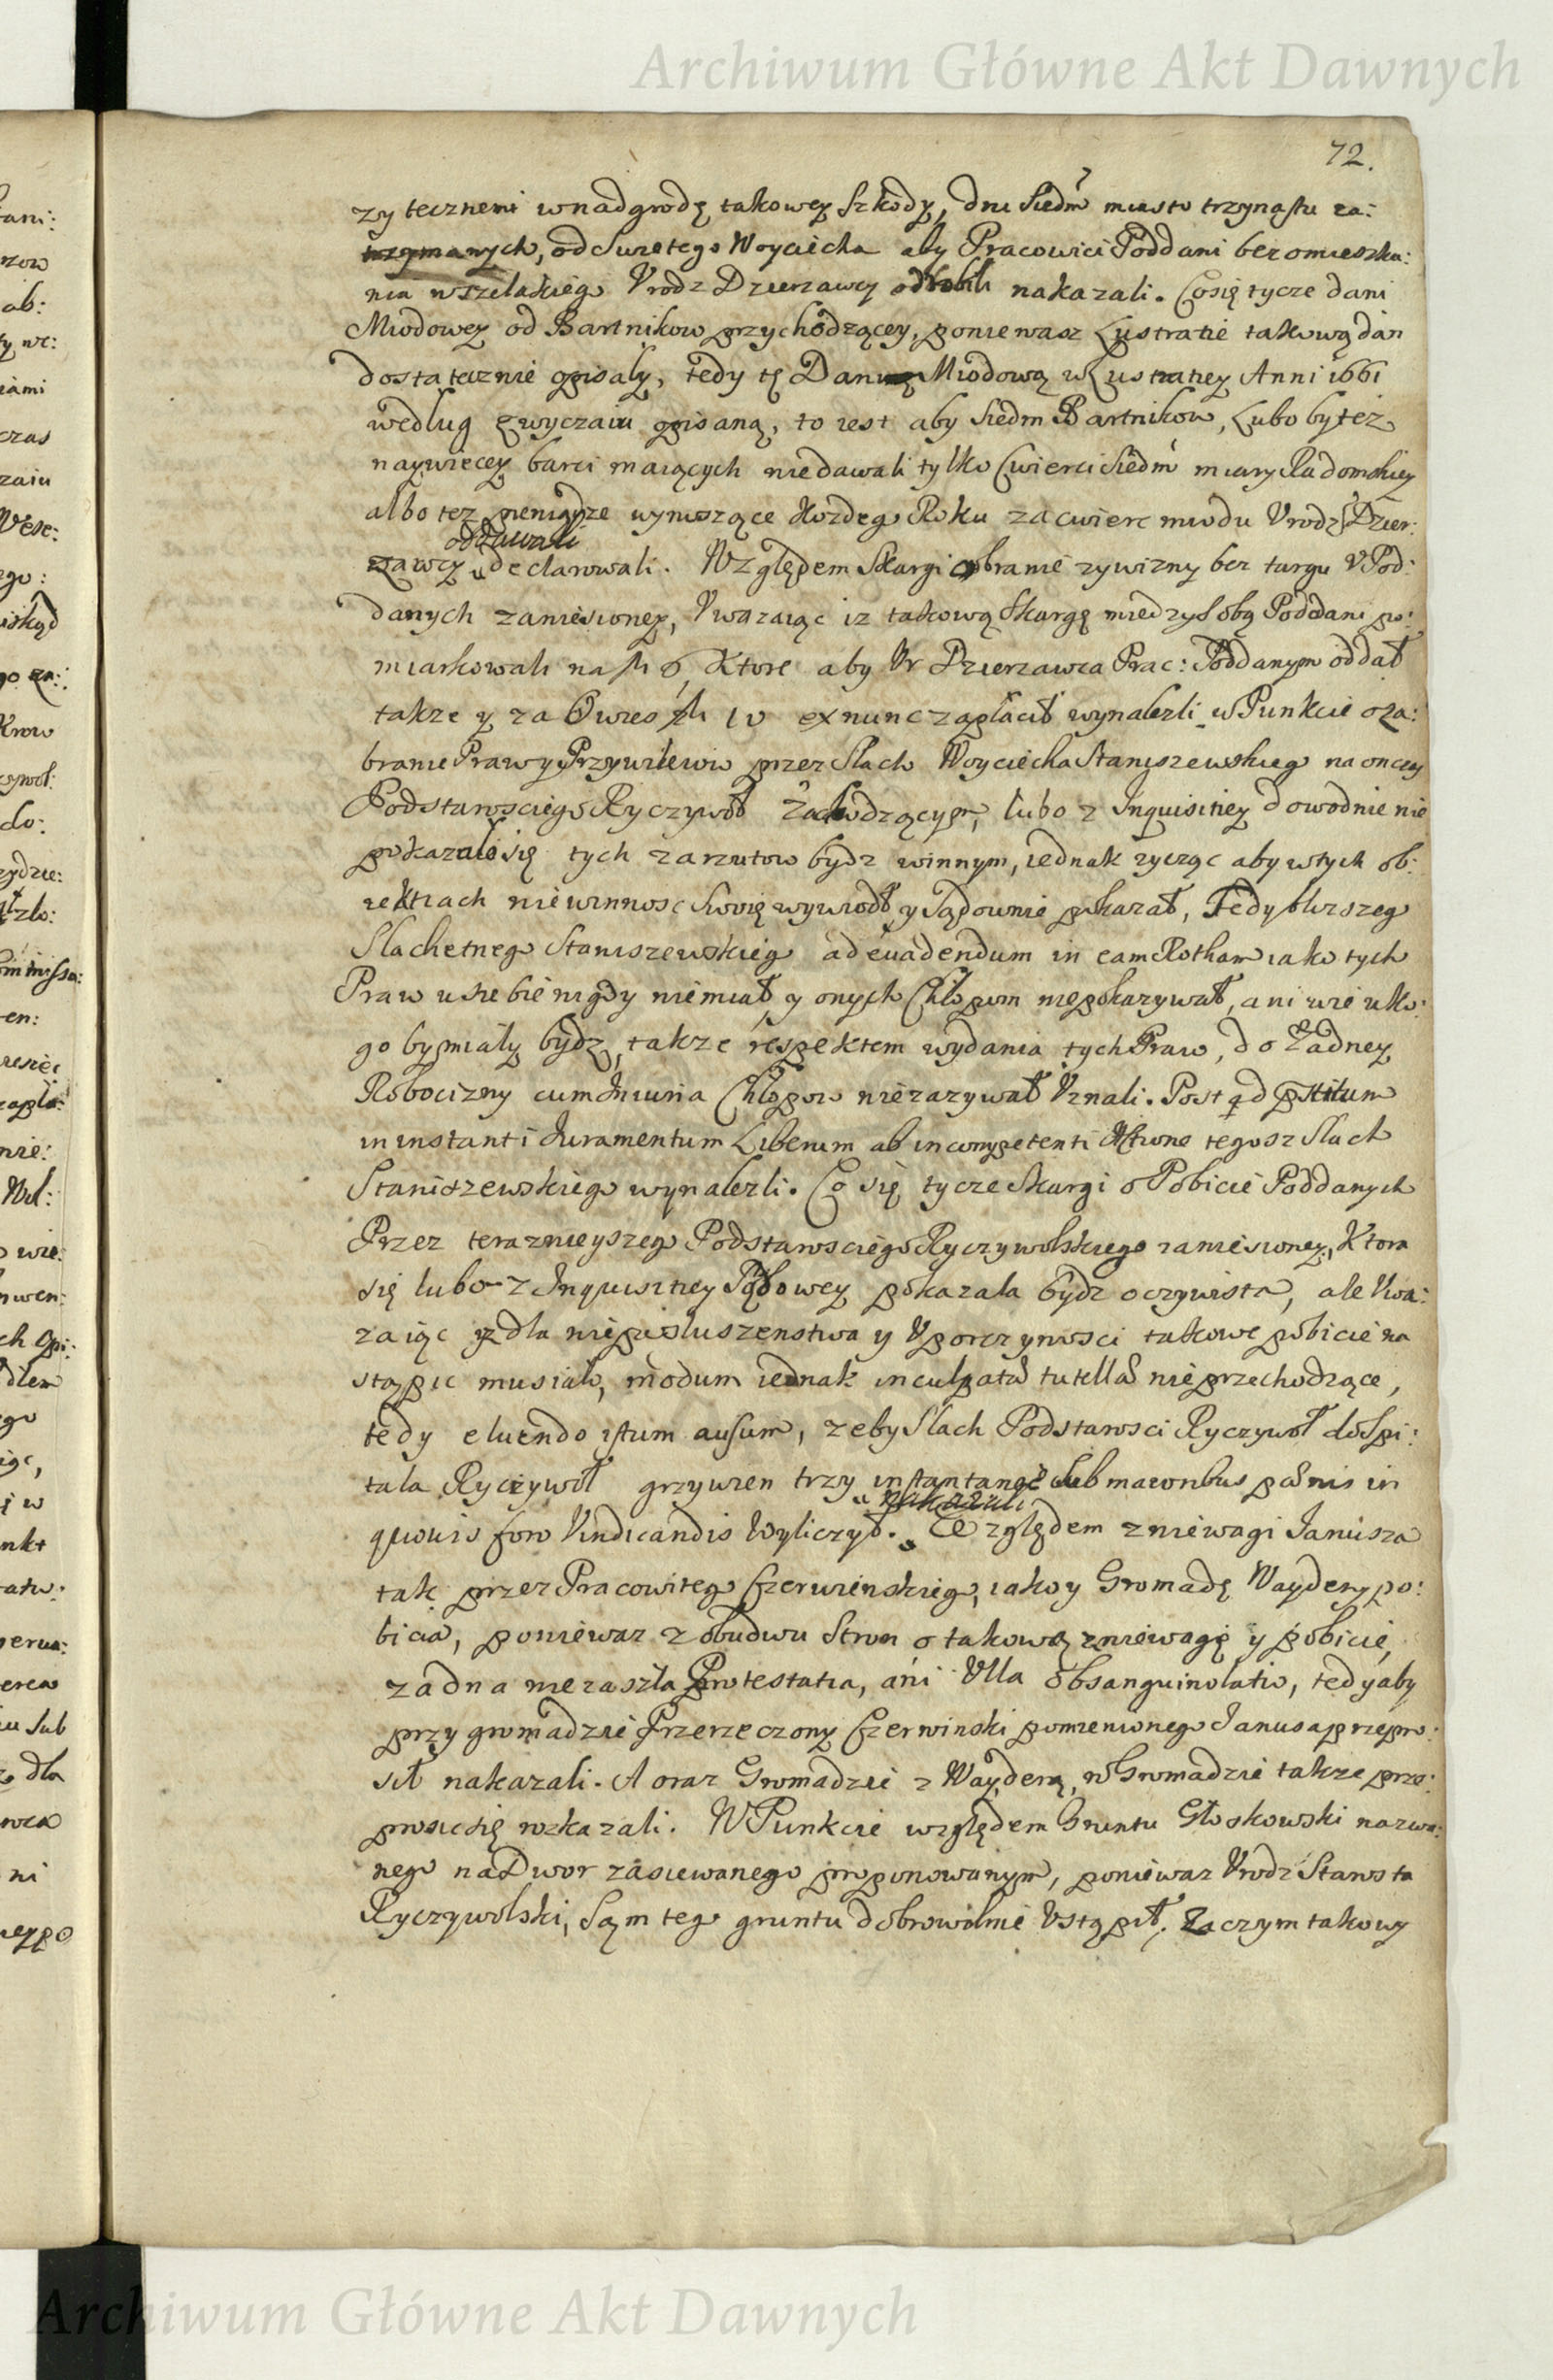 Archiwum Główne Akt Dawnych
72.
zytecznemi w nadgrodę takowey Szkody, dni Siedm miasto trzynastu za:
trzymanych, od Swietego Woyciecha aby Pracowici Poddani bez omieszka:
nia wszelakiego Vrodz Dzierzawcy odrobili nakazali. Co się tycze dani
Miodowey od Bartnikow przychodzącey, poniewasz Lustratie takową dan
dostatecznie opisały, tedy tę Danię Miodową w Lustratiey Anni 1661
według zwyczaiu opisaną, to iest aby Siedm Bartnikow, Lubo by też
naywiecey barci maiących nie dawali tylko Cwierci Siedm miary Radomskiey
albo tez pieniądze wynoszące Kozdego Roku za cwierc miodu Vrodz Dzier:
oddawali
zawcy declarowali. Względem Skargi o branie zywizny bez targu v Pod:
danych zaniesioney, Vwazaiąc iz takową Skargę miedzy Sobą Poddani po:
miarkowali na 6, Ktore aby Vr Dzierzawca Prac: Poddanym oddał
takze y za Owies 10 ex nunc zapłacił wynalezli w Punkcie o za:
branie Praw y Przywilewiu przez Slach Woyciecha Staniszewskiego na on czas
Podstarosciego Ryczywoł Zachodzącym, lubo z Inquisitiey dowodnie nie
pokazało się tych zarzutow bydz winnym, iednak zycząc aby w tych ob:
iektiach niewinnosc Swoię wywiodł y Sądownie pokazał, Tedy blizszego
Slachetnego Staniszewskiego ad evadendum in eam Rotham iako tych
Praw u siebie nigdy nie miał y onych Chłopom nie pokazywał, ani wie u ko:
go by miały bydz, takze respektem wydania tych Praw, do Zadney
Robocizny cum Iniuria Chłopow nie zazywał Vznali. Post qd pstitum
in instanti Juramentum Liberum ab incompetenti Actione tegosz Slach
Staniszewskiego wynalezli. Co się tycze Skargi o Pobicie Poddanych
Przez teraznieyszego Podstarosciego Ryczywolskiego zaniesioney, Ktora
się lubo z Inquisitiey Sądowey pokazala bydz oczywista, ale Vwa:
zaiąc yz dla nieposluszenstwa y Vporczywosci takowe pobicie na
stąpic musiało, modum iednak inculpatæ tutellæ nie przechodzące,
tedy eluendo istum ausum, zeby Slach Podstarosci Ryczywoł do Szpi:
tala Ryczywoł grzywien trzy instantanee sub maioribus pœnis in
nakazali
quovis foro Vindicandis Wyliczył. Względem zniewagi Janusza
tak przez Pracowitego Czerwienskiego, iako y Gromadę Waydeny po:
bicia, poniewaz z obudwu Stron o takową zniewagę y pobicie,
zadna nie zaszła Protestatia, ani Vlla obsanguinolatio, tedy aby
przy gromadzie Przerzeczony Czerwinski pomienionego Janusa przepro:
sił nakazali. A oraz Gromadzie z Waydeną, w Gromadzie takze prze:
prosic się rozkazali. W Punkcie względem Gruntu Głoskowski nazwa:
nego na Dwor zasiewanego proponowanym, poniewaz Vrodz Starosta
Ryczywolski, Sąm tego gruntu dobrowolnie Vstąpił, Zaczym takowy
Archiwum Główne Akt Dawnych